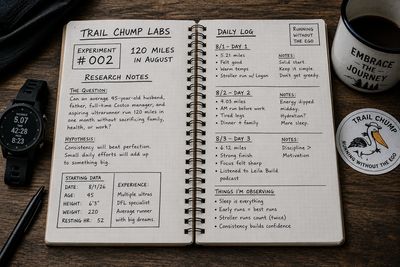 TRAIL CHUMP LABS
EXPERIMENT
#002
120 MILES
IN AUGUST
RESEARCH NOTES
THE QUESTION:
Can an average 45-year-old husband,
father, full-time Costco manager, and
aspiring ultrarunner run 120 miles in
one month without sacrificing family,
health, or work?
HYPOTHESIS:
Consistency will beat perfection.
Small daily efforts will add up
to something big.
STARTING DATA
DATE: 8/1/26
AGE: 45
HEIGHT: 6'3"
WEIGHT: 220
RESTING HR: 52
EXPERIENCE:
Multiple ultras
DFL specialist
Average runner
with big dreams.
DAILY LOG
RUNNING
WITHOUT
THE EGO
8/1 - DAY 1
• 5.21 miles
• Felt good
• Warm temps
• Stroller run w/ Logan
NOTES:
Solid start.
Keep it simple.
Don't get greedy.
8/2 - DAY 2
• 4.03 miles
• AM run before work
• Tired legs
• Dinner + family
NOTES:
Energy dipped
midday.
Hydration?
More sleep.
8/3 - DAY 3
• 6.12 miles
• Strong finish
• Focus felt sharp
• Listened to Leila Build
podcast
NOTES:
Discipline >
Motivation
THINGS I'M OBSERVING
• Sleep is everything
• Early runs = best runs
• Stroller runs count (twice)
• Consistency builds confidence
EMBRACE
THE
JOURNEY
TRAIL CHUMP
RUNNING WITHOUT THE EGO
5.07
42:28
8:23